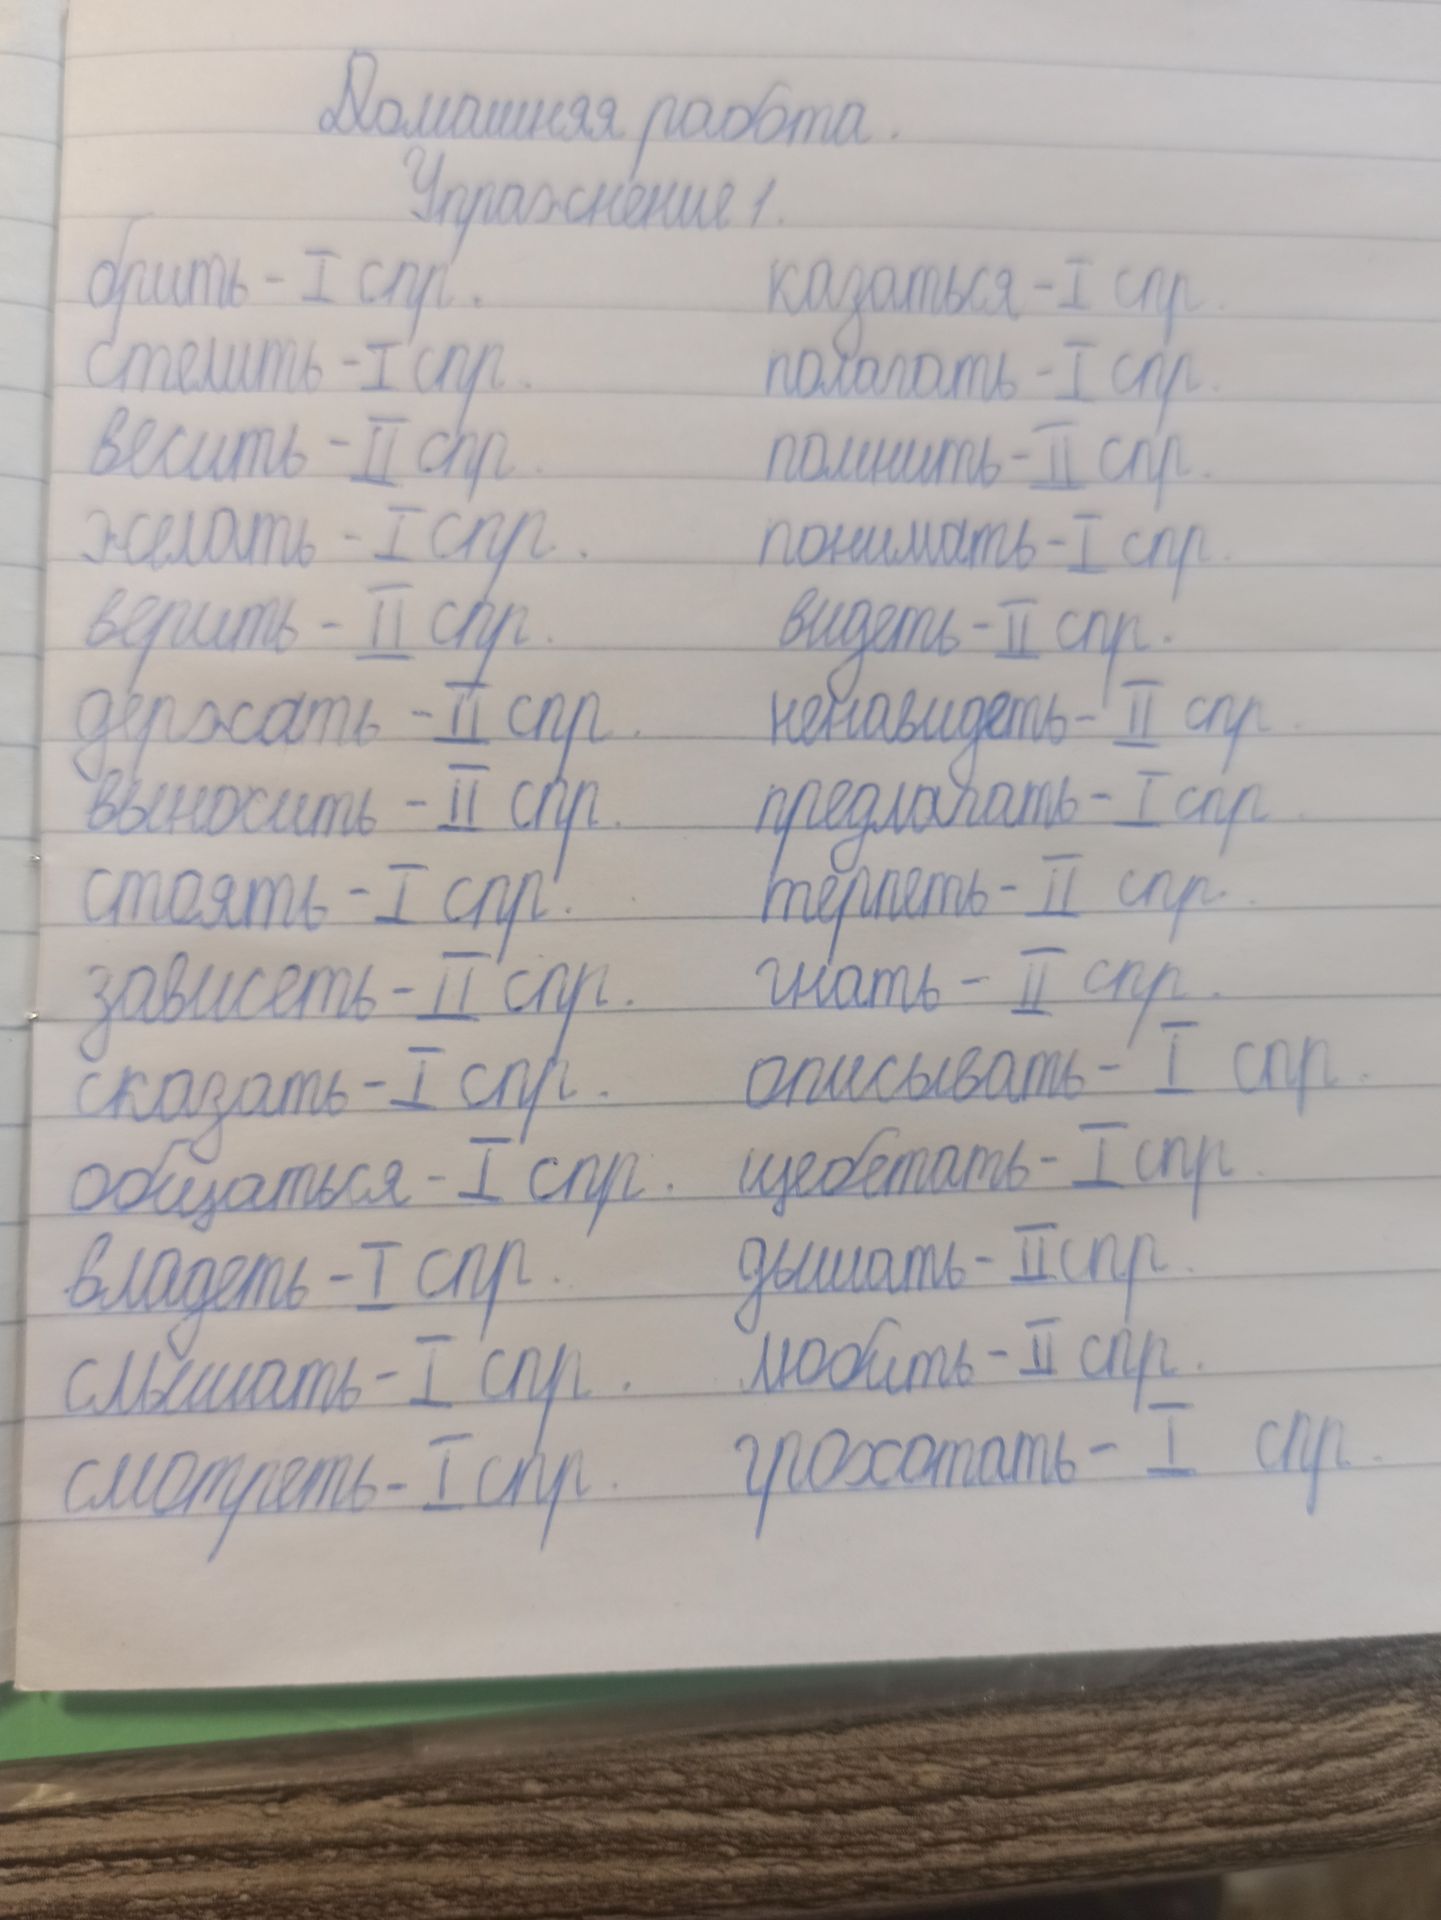 Домашняя работа.
Упражнение 1.
брить - I спр.
стелить - I спр.
весить - II спр.
желать - I спр.
верить - II спр.
держать - II спр.
выносить - II спр.
стоять - I спр.
зависеть - II спр.
сказать - I спр.
общаться - I спр.
владеть - I спр.
слышать - I спр.
смотреть - I спр.
казаться - I спр.
полагать - I спр.
помнить - II спр.
понимать - I спр.
видеть - II спр.
ненавидеть - II спр.
предлагать - I спр.
терпеть - II спр.
гнать - II спр.
описывать - I спр.
щебетать - I спр.
дышать - II спр.
любить - II спр.
грохотать - I спр.